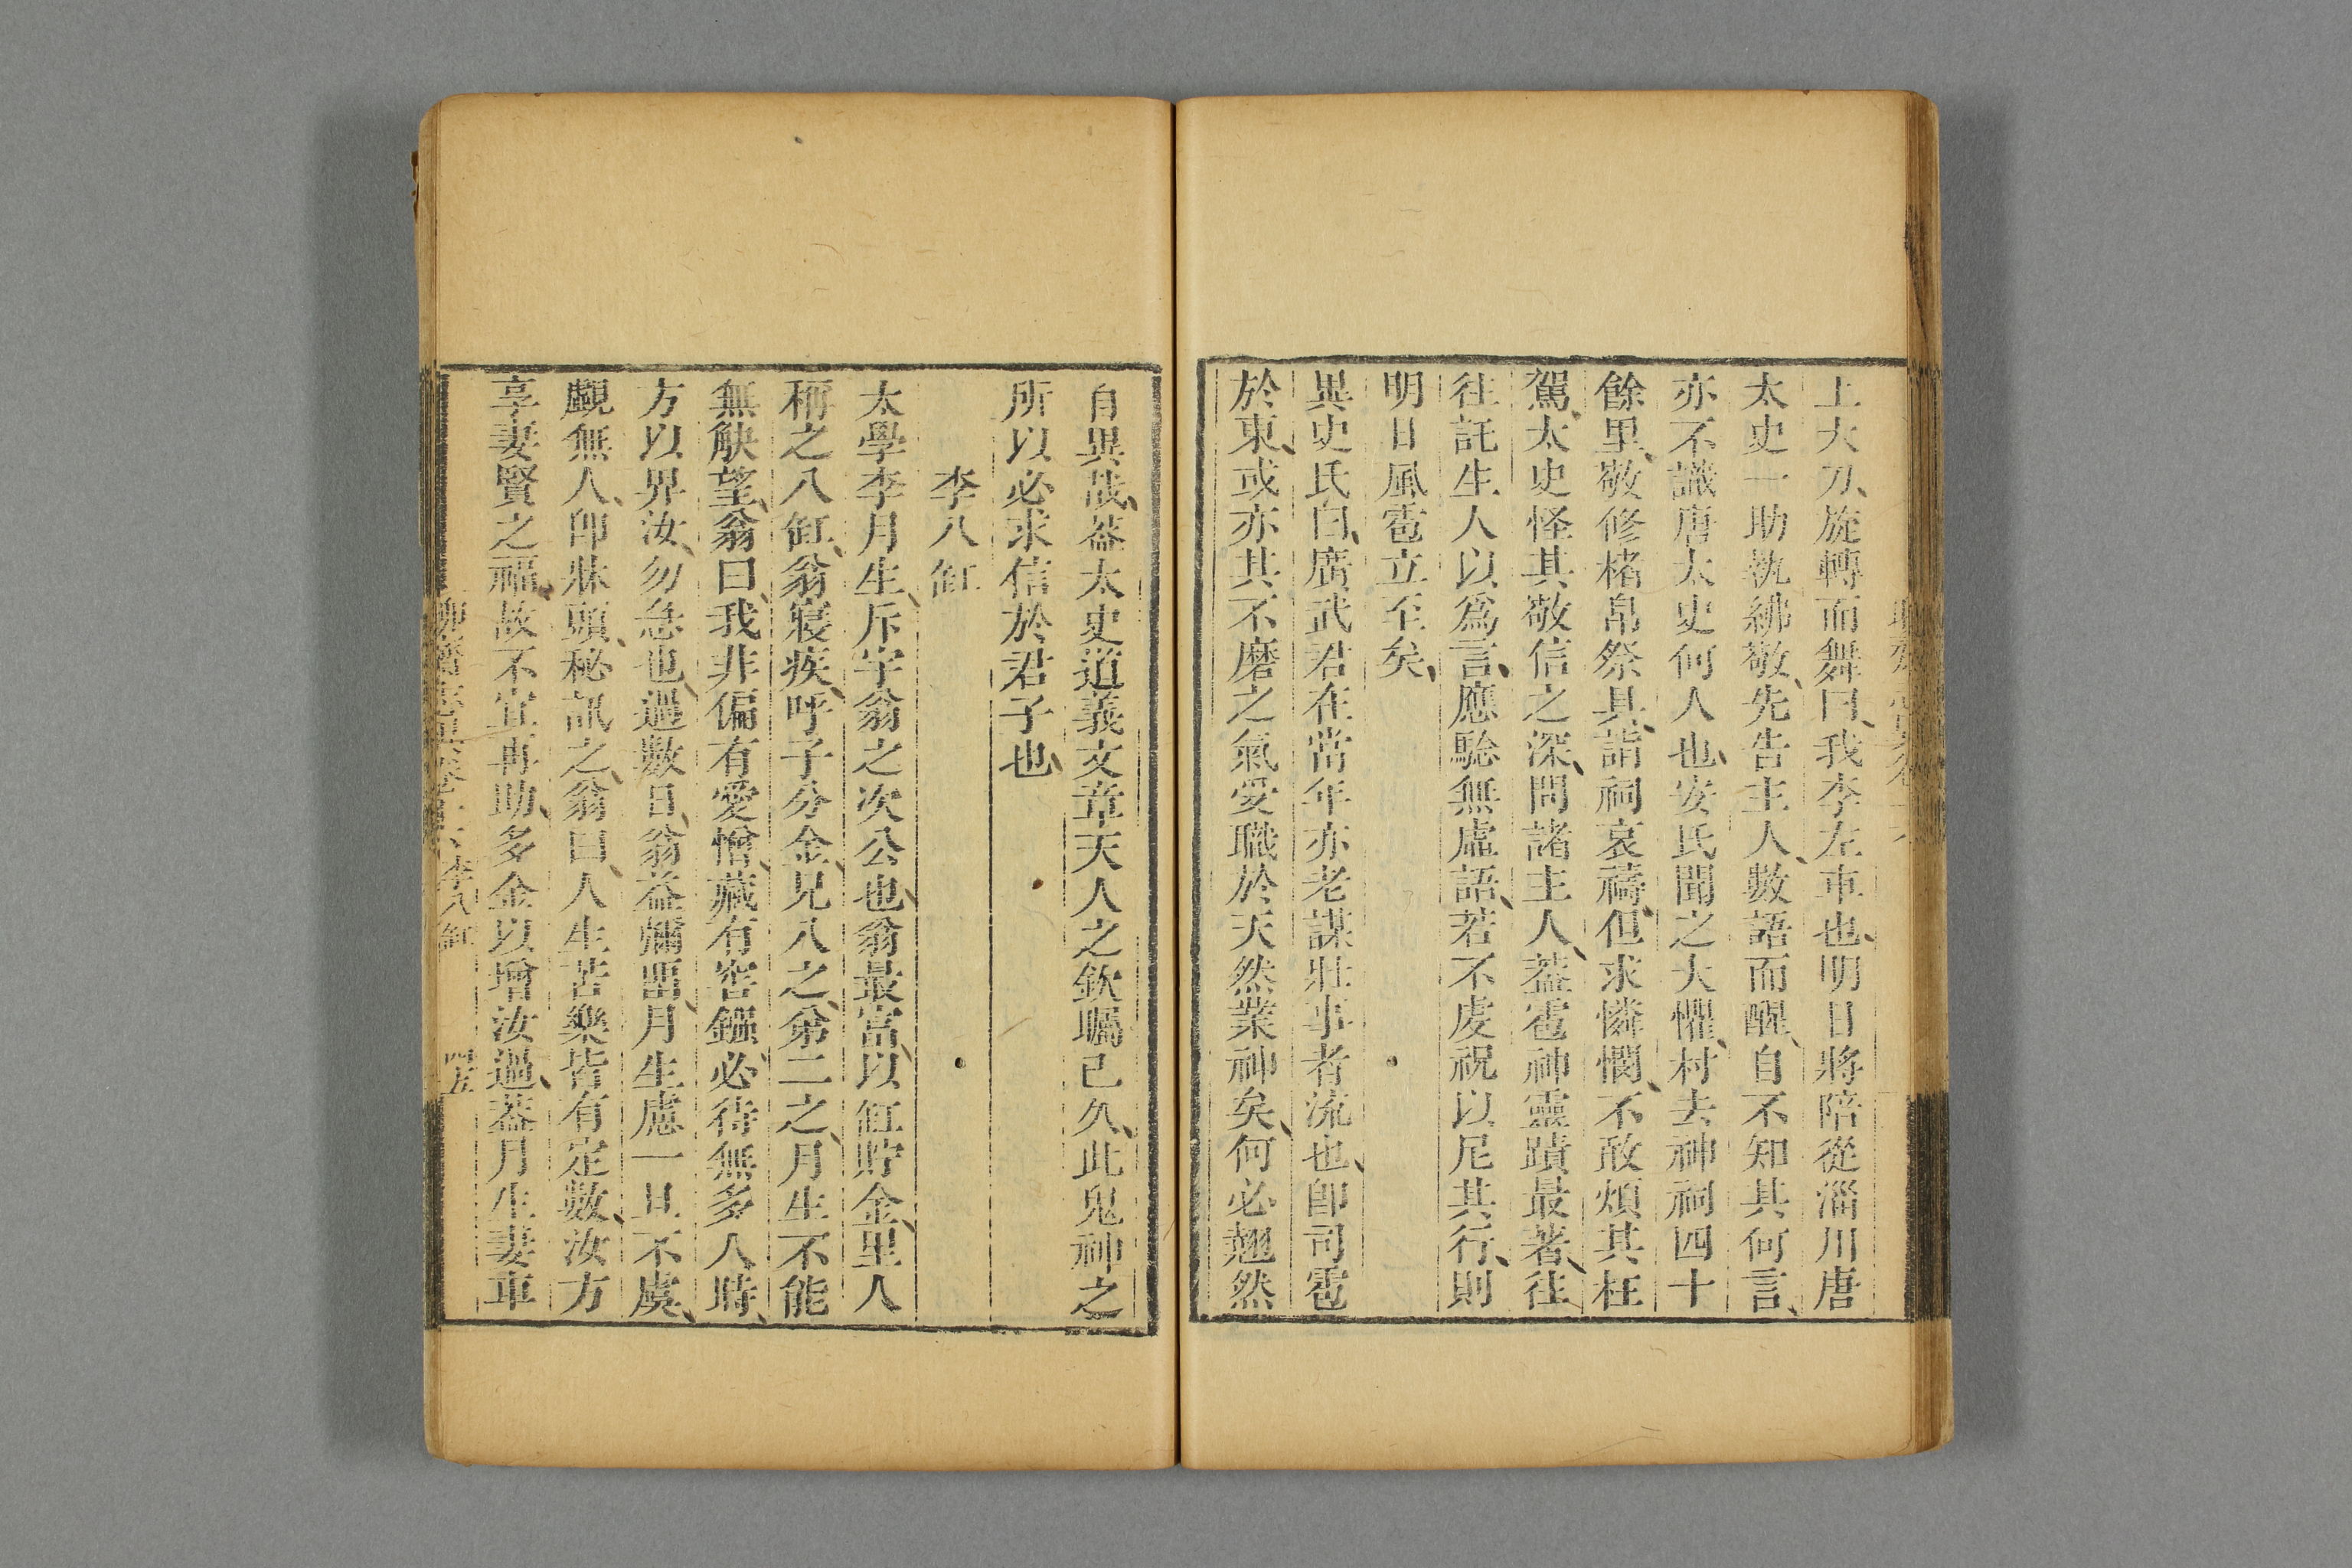 上大刀、旋轉而舞曰、我李左車也、明日將陪從淄川唐
太史一助執紼敬、先告主人、數語而醒、自不知其何言、
亦不識唐太史何人也、安氏聞之大懼、村去神祠四十
餘里、敬修楮帛祭具、詣祠哀禱、但求憐憫、不敢煩其枉
駕、太史怪其敬信之深、問諸主人、蓋雹神靈蹟最著、往
往託生人以爲言、應騐無虛語、若不虔祝以尼其行、則
明日風雹立至矣、
異史氏曰、廣武君在當年亦老謀壯事者流也、卽司雹
於東、或亦其不磨之氣受職於天然業神矣、何必翹然
自異哉、蓋太史道義文章天人之欽矚已久、此鬼神之
所以必求信於君子也、
李八缸
太學李月生、斥宇翁之次公也、翁最富、以缸貯金、里人
稱之八缸、翁寢疾、呼子分金、兄八之、弟二之、月生不能
無觖望、翁曰、我非偏有愛憎、藏有窖鏹、必待無多人時、
方以畀汝、勿急也、過數日、翁益彌留、月生慮一旦不虞、
覷無人、卽牀頭、秘訊之、翁曰、人生苦樂皆有定數、汝方
享妻賢之福、故不宜再助、多金以增汝過、蓋月生妻車
李八缸